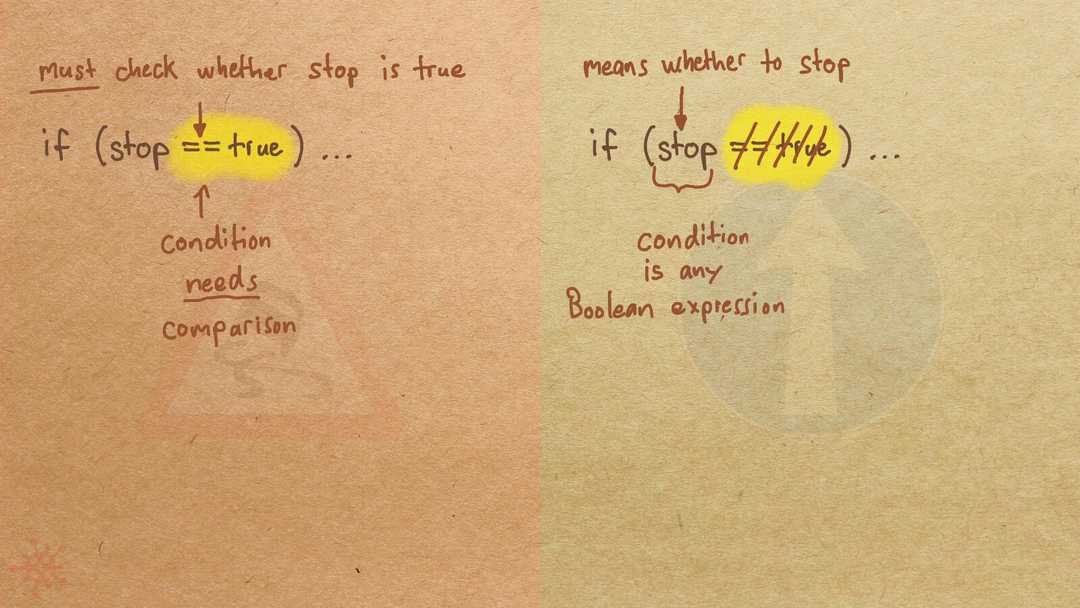 must check whether stop is true
if (stop == true) ...
condition
needs
comparison
means whether to stop
if (stop == true) ...
condition
is any
Boolean expression